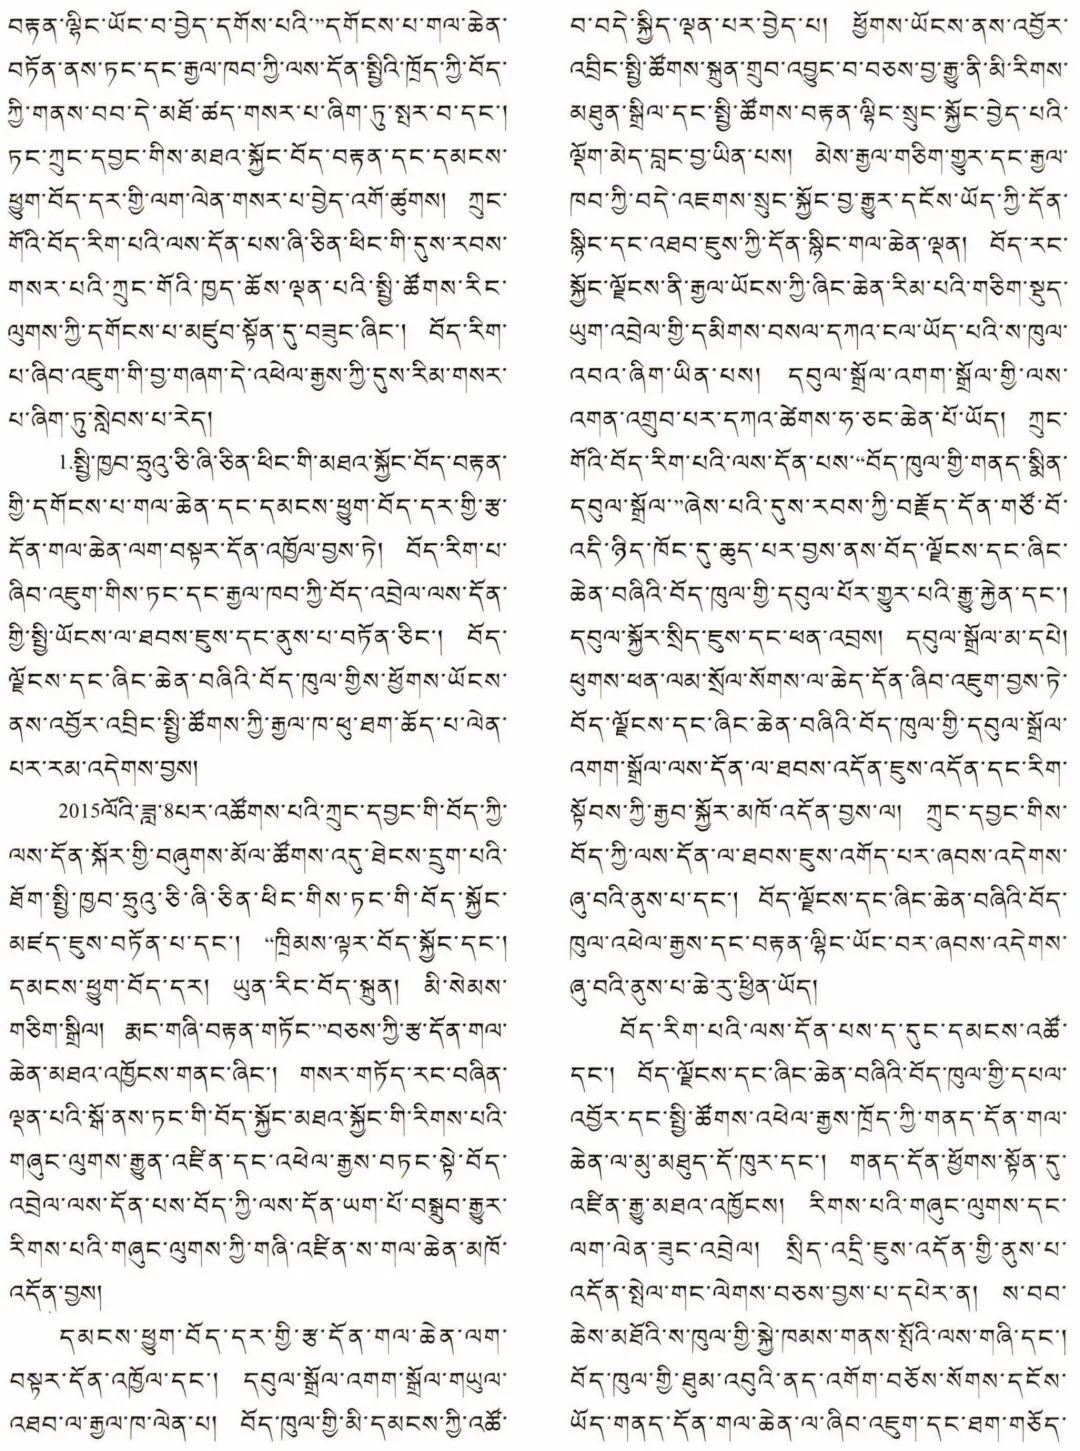 བརྟན་ལྷིང་ཡོང་བ་བྱེད་དགོས་པའི་”དགོངས་པ་གལ་ཆེན་
བཏོན་ནས་ཏང་དང་རྒྱལ་ཁབ་ཀྱི་ལས་དོན་སྤྱིའི་ཁྲོད་ཀྱི་བོད་
ཀྱི་གནས་བབ་དེ་མཐོ་ཚད་གསར་པ་ཞིག་ཏུ་སྤར་བ་དང་།
ཏང་ཀྲུང་དབྱང་གིས་མཐའ་སྐྱོང་བོད་བརྟན་དང་དམངས་
ཕྱུག་བོད་དར་གྱི་ལག་ལེན་གསར་པ་བྱེད་འགོ་ཚུགས། ཀྲུང་
གོའི་བོད་རིག་པའི་ལས་དོན་པས་ཞི་ཅིན་ཕིང་གི་དུས་རབས་
གསར་པའི་ཀྲུང་གོའི་ཁྱད་ཆོས་ལྡན་པའི་སྤྱི་ཚོགས་རིང་
ལུགས་ཀྱི་དགོངས་པ་མཛུབ་སྟོན་དུ་བཟུང་ཞིང་། བོད་རིག་
པ་ཞིབ་འཇུག་གི་བྱ་གཞག་དེ་འཕེལ་རྒྱས་ཀྱི་དུས་རིམ་གསར་
པ་ཞིག་ཏུ་སླེབས་པ་རེད།
1.སྤྱི་ཁྱབ་ཧྲུའུ་ཅི་ཞི་ཅིན་ཕིང་གི་མཐའ་སྐྱོང་བོད་བརྟན་
གྱི་དགོངས་པ་གལ་ཆེན་དང་དམངས་ཕྱུག་བོད་དར་གྱི་རྩ་
དོན་གལ་ཆེན་ལག་བསྟར་དོན་འཁྱོལ་བྱས་ཏེ། བོད་རིག་པ་
ཞིབ་འཇུག་གིས་ཏང་དང་རྒྱལ་ཁབ་ཀྱི་བོད་འབྲེལ་ལས་དོན་
གྱི་སྤྱི་ཡོངས་ལ་ཐབས་ཇུས་དང་ནུས་པ་བཏོན་ཅིང་། བོད་
ལྗོངས་དང་ཞིང་ཆེན་བཞིའི་བོད་ཁུལ་གྱིས་ཕྱོགས་ཡོངས་
ནས་འབྱོར་འབྲིང་སྤྱི་ཚོགས་ཀྱི་རྒྱལ་ཁ་ཕུ་ཐག་ཆོད་པ་ལེན་
པར་རམ་འདེགས་བྱས།
2015ལོའི་ཟླ་8པར་འཚོགས་པའི་ཀྲུང་དབྱང་གི་བོད་ཀྱི་
ལས་དོན་སྐོར་གྱི་བཞུགས་མོལ་ཚོགས་འདུ་ཐེངས་དྲུག་པའི་
ཐོག་སྤྱི་ཁྱབ་ཧྲུའུ་ཅི་ཞི་ཅིན་ཕིང་གིས་ཏང་གི་བོད་སྐྱོང་
མཛད་ཇུས་བཏོན་པ་དང་། “ཁྲིམས་ལྟར་བོད་སྐྱོང་དང་།
དམངས་ཕྱུག་བོད་དར། ཡུན་རིང་བོད་སྐྲུན། མི་སེམས་
གཅིག་སྒྲིལ། རྨང་གཞི་བརྟན་གཏོང་”བཅས་ཀྱི་རྩ་དོན་གལ་
ཆེན་མཐའ་འཁྱོངས་གནང་ཞིང་། གསར་གཏོད་རང་བཞིན་
ལྡན་པའི་སྒོ་ནས་ཏང་གི་བོད་སྐྱོང་མཐའ་སྐྱོང་གི་རིགས་པའི་
གཞུང་ལུགས་རྒྱུན་འཛིན་དང་འཕེལ་རྒྱས་བཏང་སྟེ་བོད་
འབྲེལ་ལས་དོན་པས་བོད་ཀྱི་ལས་དོན་ཡག་པོ་བསྒྲུབ་རྒྱུར་
རིགས་པའི་གཞུང་ལུགས་ཀྱི་གཞི་འཛིན་ས་གལ་ཆེན་མཁོ་
འདོན་བྱས།
དམངས་ཕྱུག་བོད་དར་གྱི་རྩ་དོན་གལ་ཆེན་ལག་
བསྟར་དོན་འཁྱོལ་དང་། དབུལ་སྒྲོལ་འགག་སྒྲོལ་གཡུལ་
འཐབ་ལ་རྒྱལ་ཁ་ལེན་པ། བོད་ཁུལ་གྱི་མི་དམངས་ཀྱི་འཚོ་
བ་བདེ་སྐྱིད་ལྡན་པར་བྱེད་པ། ཕྱོགས་ཡོངས་ནས་འབྱོར་
འབྲིང་སྤྱི་ཚོགས་སྐྲུན་གྲུབ་འབྱུང་བ་བཅས་བྱ་རྒྱུ་ནི་མི་རིགས་
མཐུན་སྒྲིལ་དང་སྤྱི་ཚོགས་བརྟན་ལྷིང་སྲུང་སྐྱོང་བྱེད་པའི་
ལྡོག་མེད་བླང་བྱ་ཡིན་པས། མེས་རྒྱལ་གཅིག་གྱུར་དང་རྒྱལ་
ཁབ་ཀྱི་བདེ་འཇགས་སྲུང་སྐྱོང་བྱ་རྒྱུར་དངོས་ཡོད་ཀྱི་དོན་
སྙིང་དང་འཐབ་ཇུས་ཀྱི་དོན་སྙིང་གལ་ཆེན་ལྡན། བོད་རང་
སྐྱོང་ལྗོངས་ནི་རྒྱལ་ཡོངས་ཀྱི་ཞིང་ཆེན་རིམ་པའི་གཅིག་སྡུད་
ཡུག་འབྲེལ་གྱི་དམིགས་བསལ་དཀའ་ངལ་ཡོད་པའི་ས་ཁུལ་
འབའ་ཞིག་ཡིན་པས། དབུལ་སྒྲོལ་འགག་སྒྲོལ་གྱི་ལས་
འགན་འགྲུབ་པར་དཀའ་ཚེགས་ཧ་ཅང་ཆེན་པོ་ཡོད། ཀྲུང་
གོའི་བོད་རིག་པའི་ལས་དོན་པས་“བོད་ཁུལ་གྱི་གནད་སྨིན་
དབུལ་སྒྲོལ་”ཞེས་པའི་དུས་རབས་ཀྱི་བརྗོད་དོན་གཙོ་བོ་
འདི་ཉིད་ཁོང་དུ་ཆུད་པར་བྱས་ནས་བོད་ལྗོངས་དང་ཞིང་
ཆེན་བཞིའི་བོད་ཁུལ་གྱི་དབུལ་པོར་གྱུར་པའི་རྒྱུ་རྐྱེན་དང་།
དབུལ་སྐྱོར་སྲིད་ཇུས་དང་ཕན་འབྲས། དབུལ་སྒྲོལ་མ་དཔེ།
ཕུགས་ཕན་ལམ་སྲོལ་སོགས་ལ་ཆེད་དོན་ཞིབ་འཇུག་བྱས་ཏེ་
བོད་ལྗོངས་དང་ཞིང་ཆེན་བཞིའི་བོད་ཁུལ་གྱི་དབུལ་སྒྲོལ་
འགག་སྒྲོལ་ལས་དོན་ལ་ཐབས་འདོན་ཇུས་འདོན་དང་རིག་
སྟོབས་ཀྱི་རྒྱབ་སྐྱོར་མཁོ་འདོན་བྱས་ལ། ཀྲུང་དབྱང་གིས་
བོད་ཀྱི་ལས་དོན་ལ་ཐབས་ཇུས་འགོད་པར་ཞབས་འདེགས་
ཞུ་བའི་ནུས་པ་དང་། བོད་ལྗོངས་དང་ཞིང་ཆེན་བཞིའི་བོད་
ཁུལ་འཕེལ་རྒྱས་དང་བརྟན་ལྷིང་ཡོང་བར་ཞབས་འདེགས་
ཞུ་བའི་ནུས་པ་ཆེ་རུ་ཕྱིན་ཡོད།
བོད་རིག་པའི་ལས་དོན་པས་ད་དུང་དམངས་འཚོ་
དང་། བོད་ལྗོངས་དང་ཞིང་ཆེན་བཞིའི་བོད་ཁུལ་གྱི་དཔལ་
འབྱོར་དང་སྤྱི་ཚོགས་འཕེལ་རྒྱས་ཁྲོད་ཀྱི་གནད་དོན་གལ་
ཆེན་ལ་མུ་མཐུད་དོ་ཁུར་དང་། གནད་དོན་ཕྱོགས་སྟོན་དུ་
འཛིན་རྒྱུ་མཐའ་འཁྱོངས། རིགས་པའི་གཞུང་ལུགས་དང་
ལག་ལེན་ཟུང་འབྲེལ། སྲིད་འདྲི་ཇུས་འདོན་གྱི་ནུས་པ་
འདོན་སྤེལ་གང་ལེགས་བཅས་བྱས་པ་དཔེར་ན། ས་བབ་
ཆེས་མཐོའི་ས་ཁུལ་གྱི་སྐྱེ་ཁམས་གནས་སྤོའི་ལས་གཞི་དང་།
བོད་ཁུལ་གྱི་ཐུམ་འབུའི་ནད་འགོག་བཅོས་སོགས་དངོས་
ཡོད་གནད་དོན་གལ་ཆེན་ལ་ཞིབ་འཇུག་དང་ཐག་གཅོད་